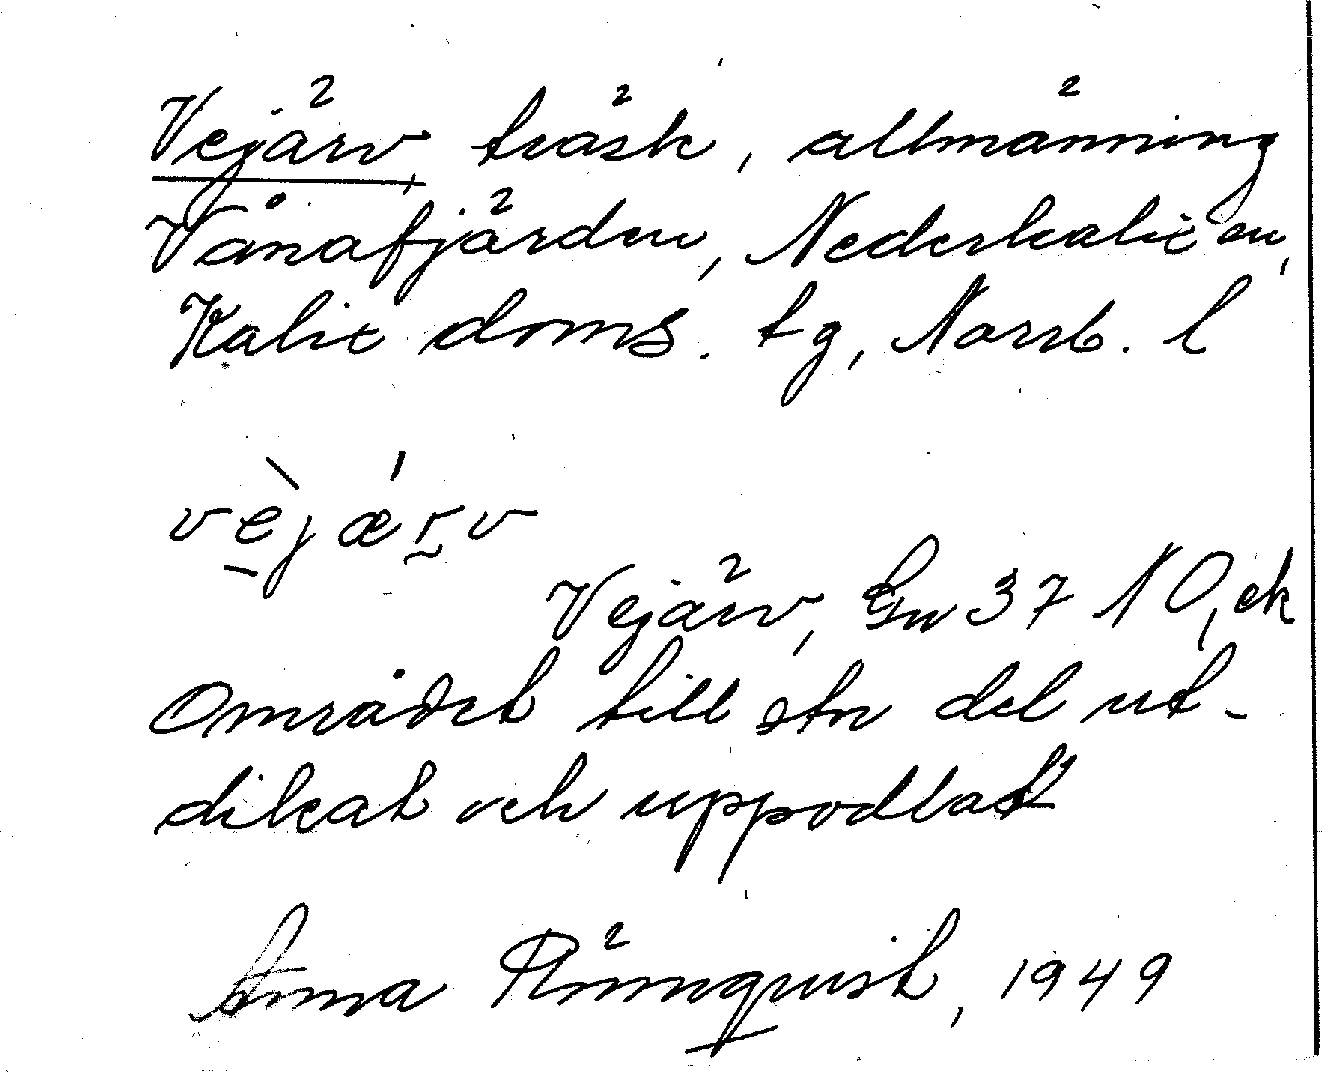 Vejärv, träsk, allmänning
Vånafjärden, Nederkalix sn,
Kalix doms. tg, Norrb. l
vèjæ'rv
Vejärv, Gn 37 NO, ek
Området till stor del ut-
dikat och uppodlat
Anna Rönnquist, 1949